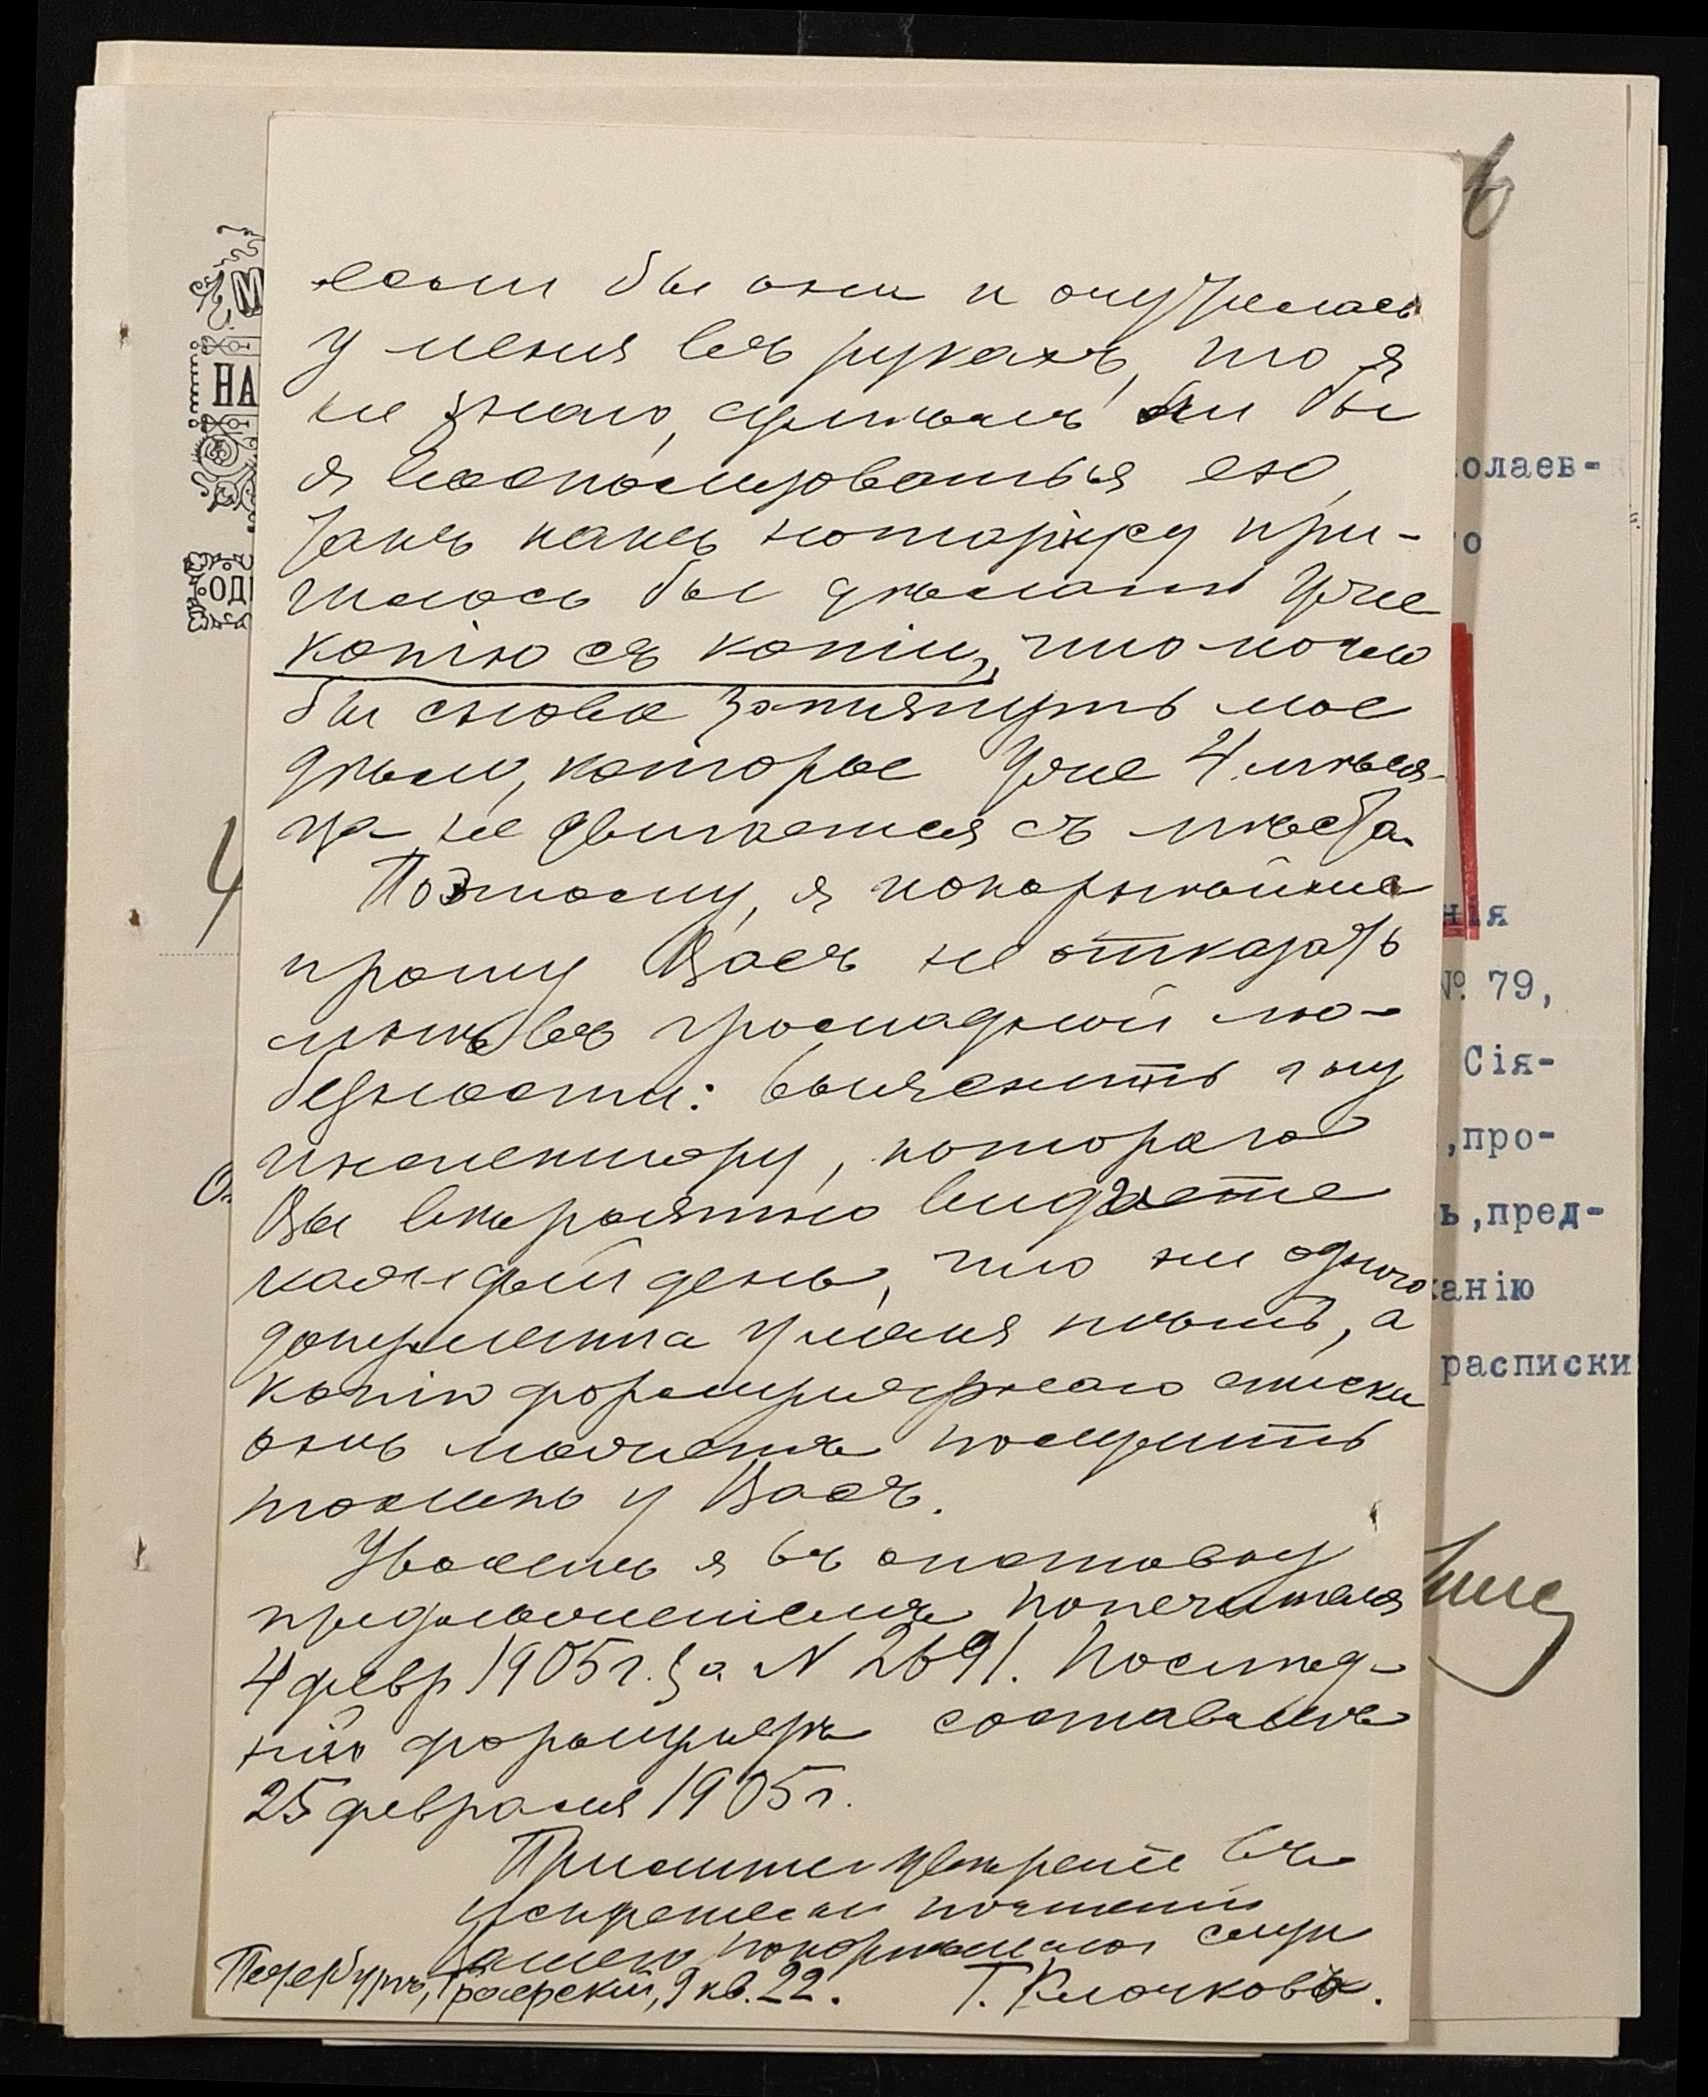 6
если бы они и очутилась
у меня въ рукахъ, то я
не знаю, сумѣлъ ли бы
я воспользоваться ею,
такъ какъ нотаріусу при-
шлось бы дѣлать уже
копію съ копіи, что могло
бы снова затянуть мое
дѣло, которое уже 4 мѣся-
ца не двигается съ мѣста.
Поэтому, я покорнѣйше
прошу Васъ не отказать
мнѣ въ громадной лю-
безности: выяснить г-ну
инспектору, котораго
Вы вѣроятно видаете
каждый день, что ни одного
документа у меня нѣтъ, а
копію формулярнаго списка
онъ можетъ получить
только у Васъ.
Уволенъ я въ отставку
предложеніемъ попечителя
4 февр 1905 г. за N 2691. Послѣд-
ній формуляръ составленъ
25 февраля 1905 г.
Примите увѣреніе въ
искреннемъ почтеніи
Вашего покорнѣйшаго слуги
Петербургъ, 9 кв. 22. Г. Клочковъ.
М
НА
ОД
4
олаев-
о
нія
№ 79,
Сія-
,про-
ь,пред-
анію
расписки